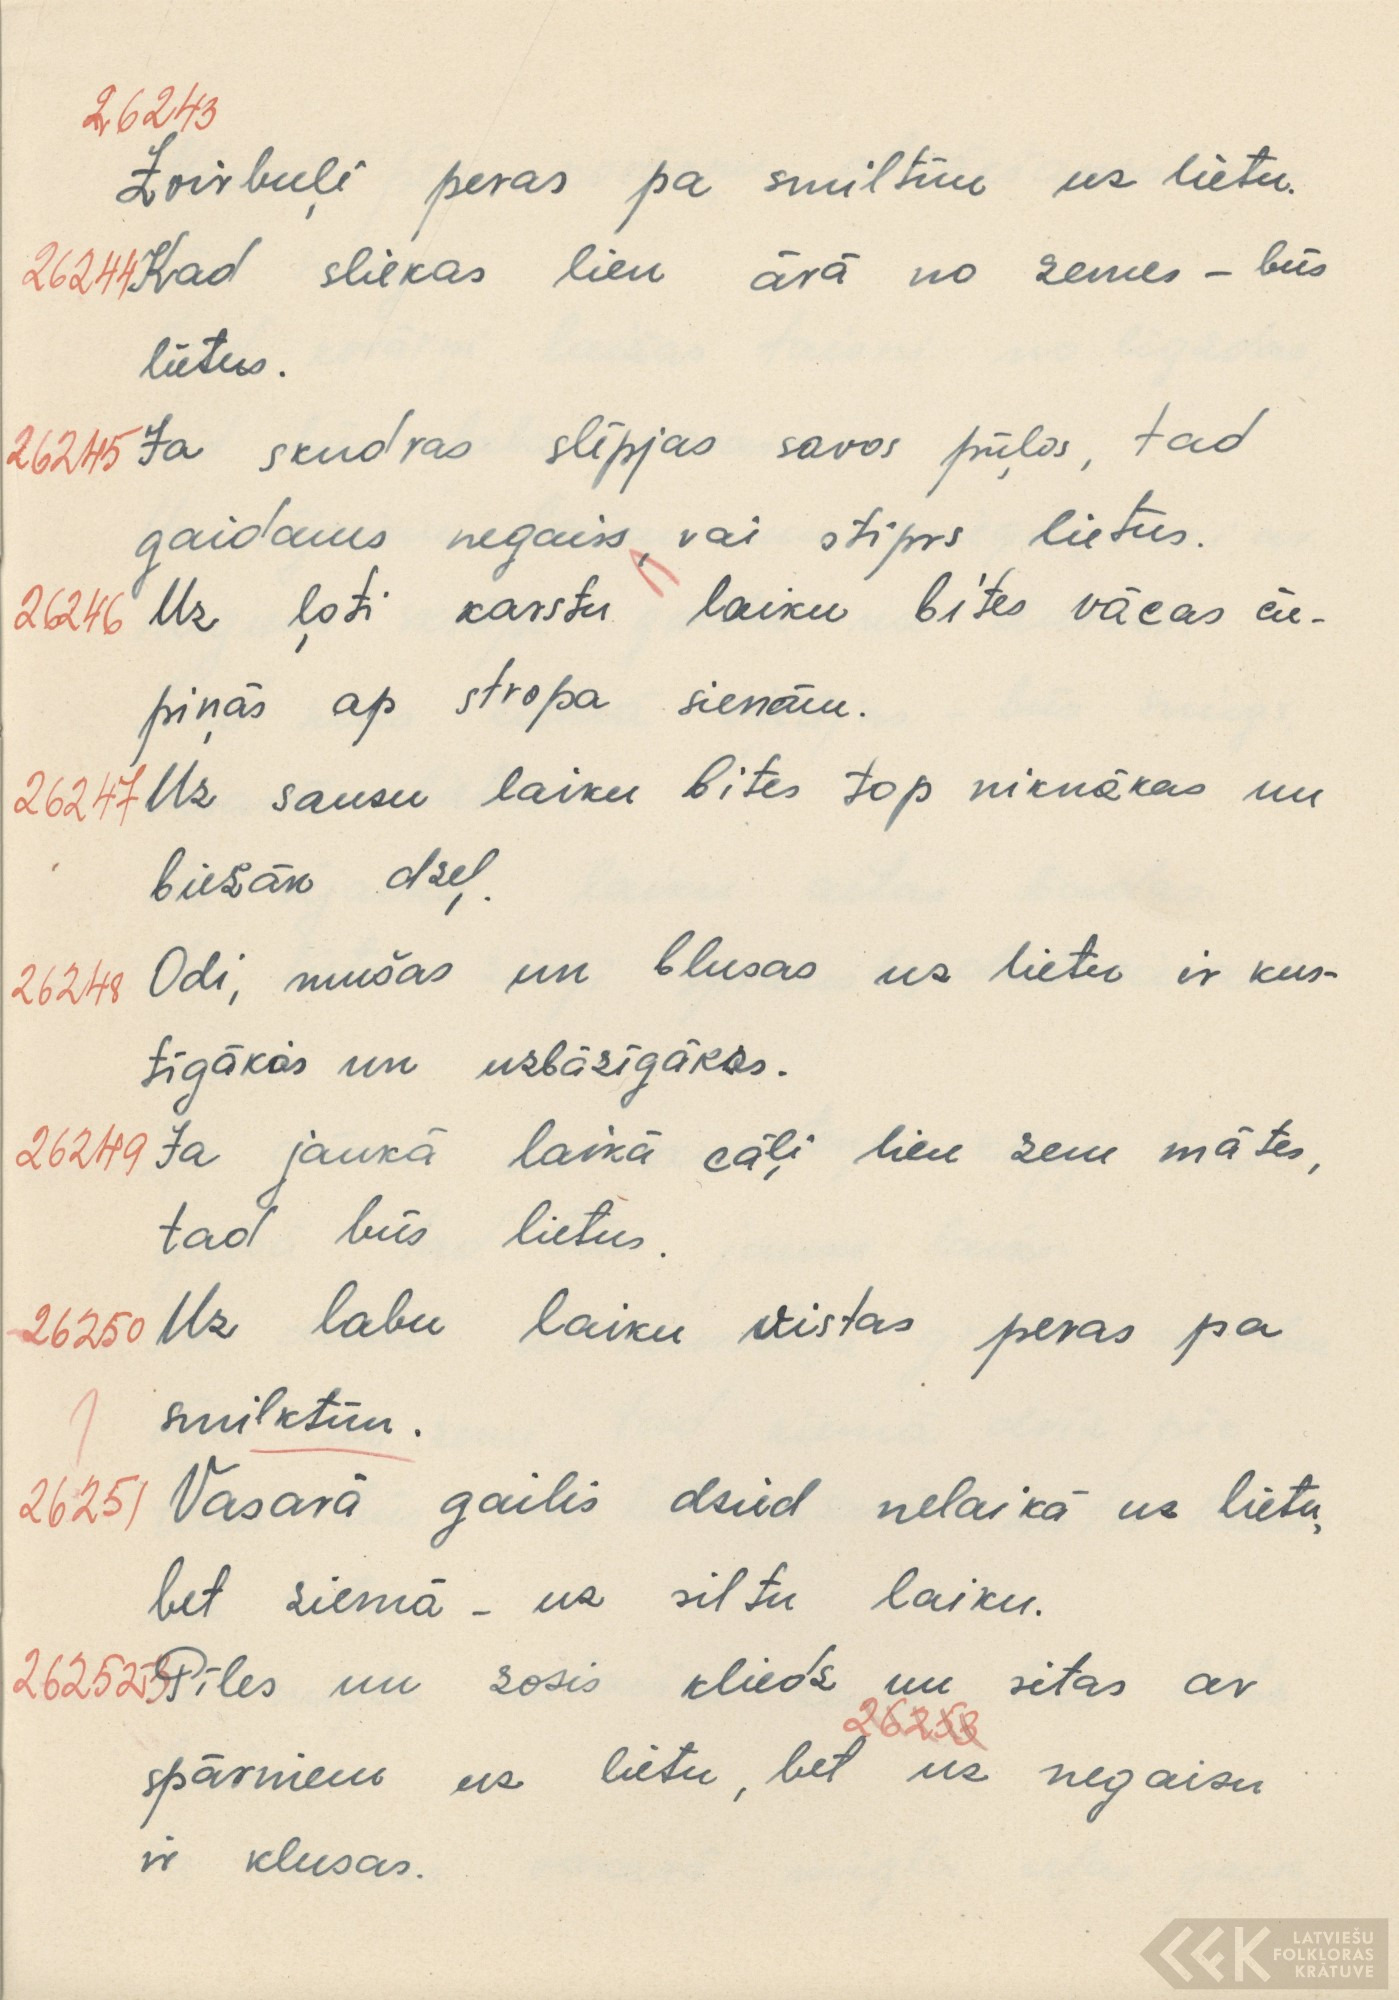 26243
Zvirbuļi peras pa smiltīm uz lietu.
26244 Kad sliekas lien ārā no zemes – būs
lietus.
26245 Ja skudras slēpjas savos pūļos, tad
gaidams negaiss, vai stiprs lietus.
26246 Uz ļoti karstu laiku bites vācas ču-
piņās ap stropa sienām.
26247 Uz sausu laiku bites top niknākas un
biežāk dzeļ.
26248 Odi, mušas un blusas uz lietu ir kus-
tīgākas un uzbāzīgākas.
26249 Ja jaukā laikā cāļi lien zem mātes,
tad būs lietus.
26250 Uz labu laiku vistas peras pa
smilktīm.
26251 Vasarā gailis dzied nelaikā uz lietu,
bet ziemā – uz siltu laiku.
26252 Pīles un zosis kliedz un sitas ar
26253
spārniem uz lietu, bet uz negaisu
ir klusas.
LATVIEŠU
FOLKLORAS
KRĀTUVE